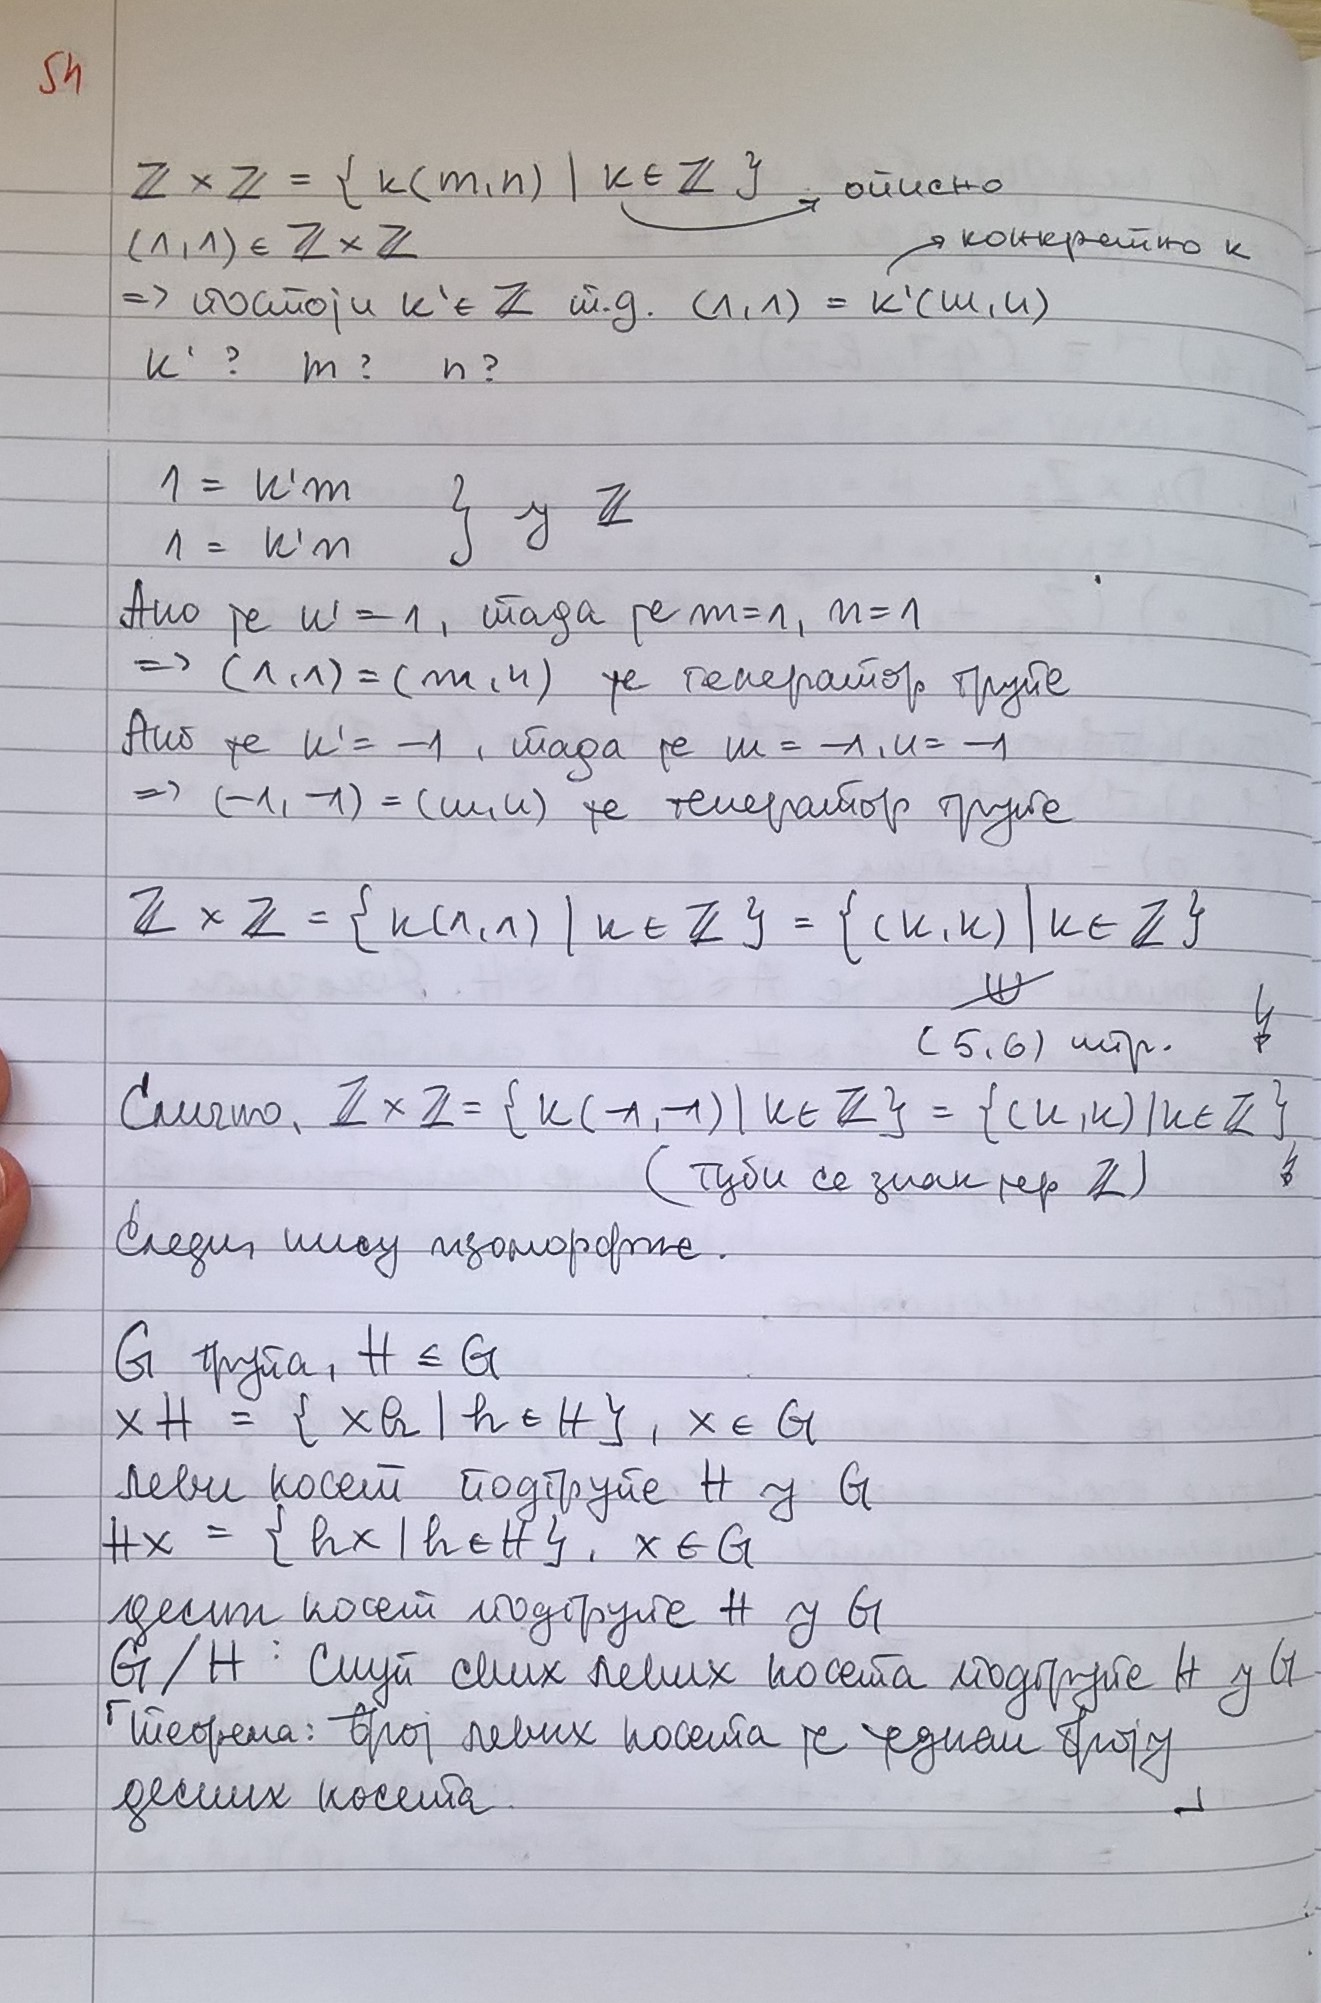 54
ℤ × ℤ = { k(m,n) | k ∈ ℤ } → описно
(1,1) ∈ ℤ × ℤ → конкретно k
=> постоји k' ∈ ℤ т.д. (1,1) = k'(m,n)
k' ? m? n?
1 = k'm
1 = k'n } у ℤ
Ако је k' = 1, тада је m=1, n=1
=> (1,1) = (m,n) је генератор групе
Ако је k' = -1, тада је m = -1, n = -1
=> (-1,-1) = (m,n) је генератор групе
ℤ × ℤ = { k(1,1) | k ∈ ℤ } = { (k,k) | k ∈ ℤ }
∌
(5,6) нпр. ↯
Слично, ℤ × ℤ = { k(-1,-1) | k ∈ ℤ } = { (k,k) | k ∈ ℤ }
(губи се знак јер ℤ) ↯
Следи, нису изоморфне.
G група, H ≤ G
xH = { xh | h ∈ H }, x ∈ G
леви косет подгрупе H у G
Hx = { hx | h ∈ H }, x ∈ G
десни косет подгрупе H у G
G/H : Скуп свих левих косета подгрупе H у G
⌜Теорема: Број левих косета је једнак броју
десних косета. ⌟